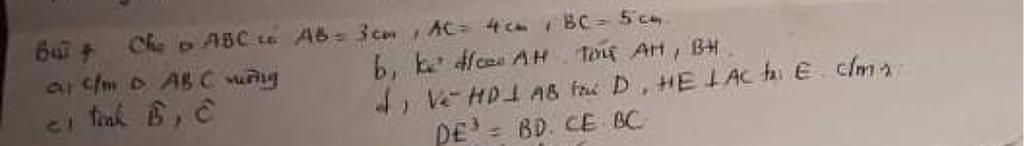 Bài 7 Cho Δ ABC có AB = 3 cm , AC = 4 cm , BC = 5 cm.
a, c/m Δ ABC vuông b, kẻ đ/cao AH. Tính AH, BH.
c, tính B̂, Ĉ d, Vẽ HD ⊥ AB tại D, HE ⊥ AC tại E. c/m:
DE³ = BD. CE. BC